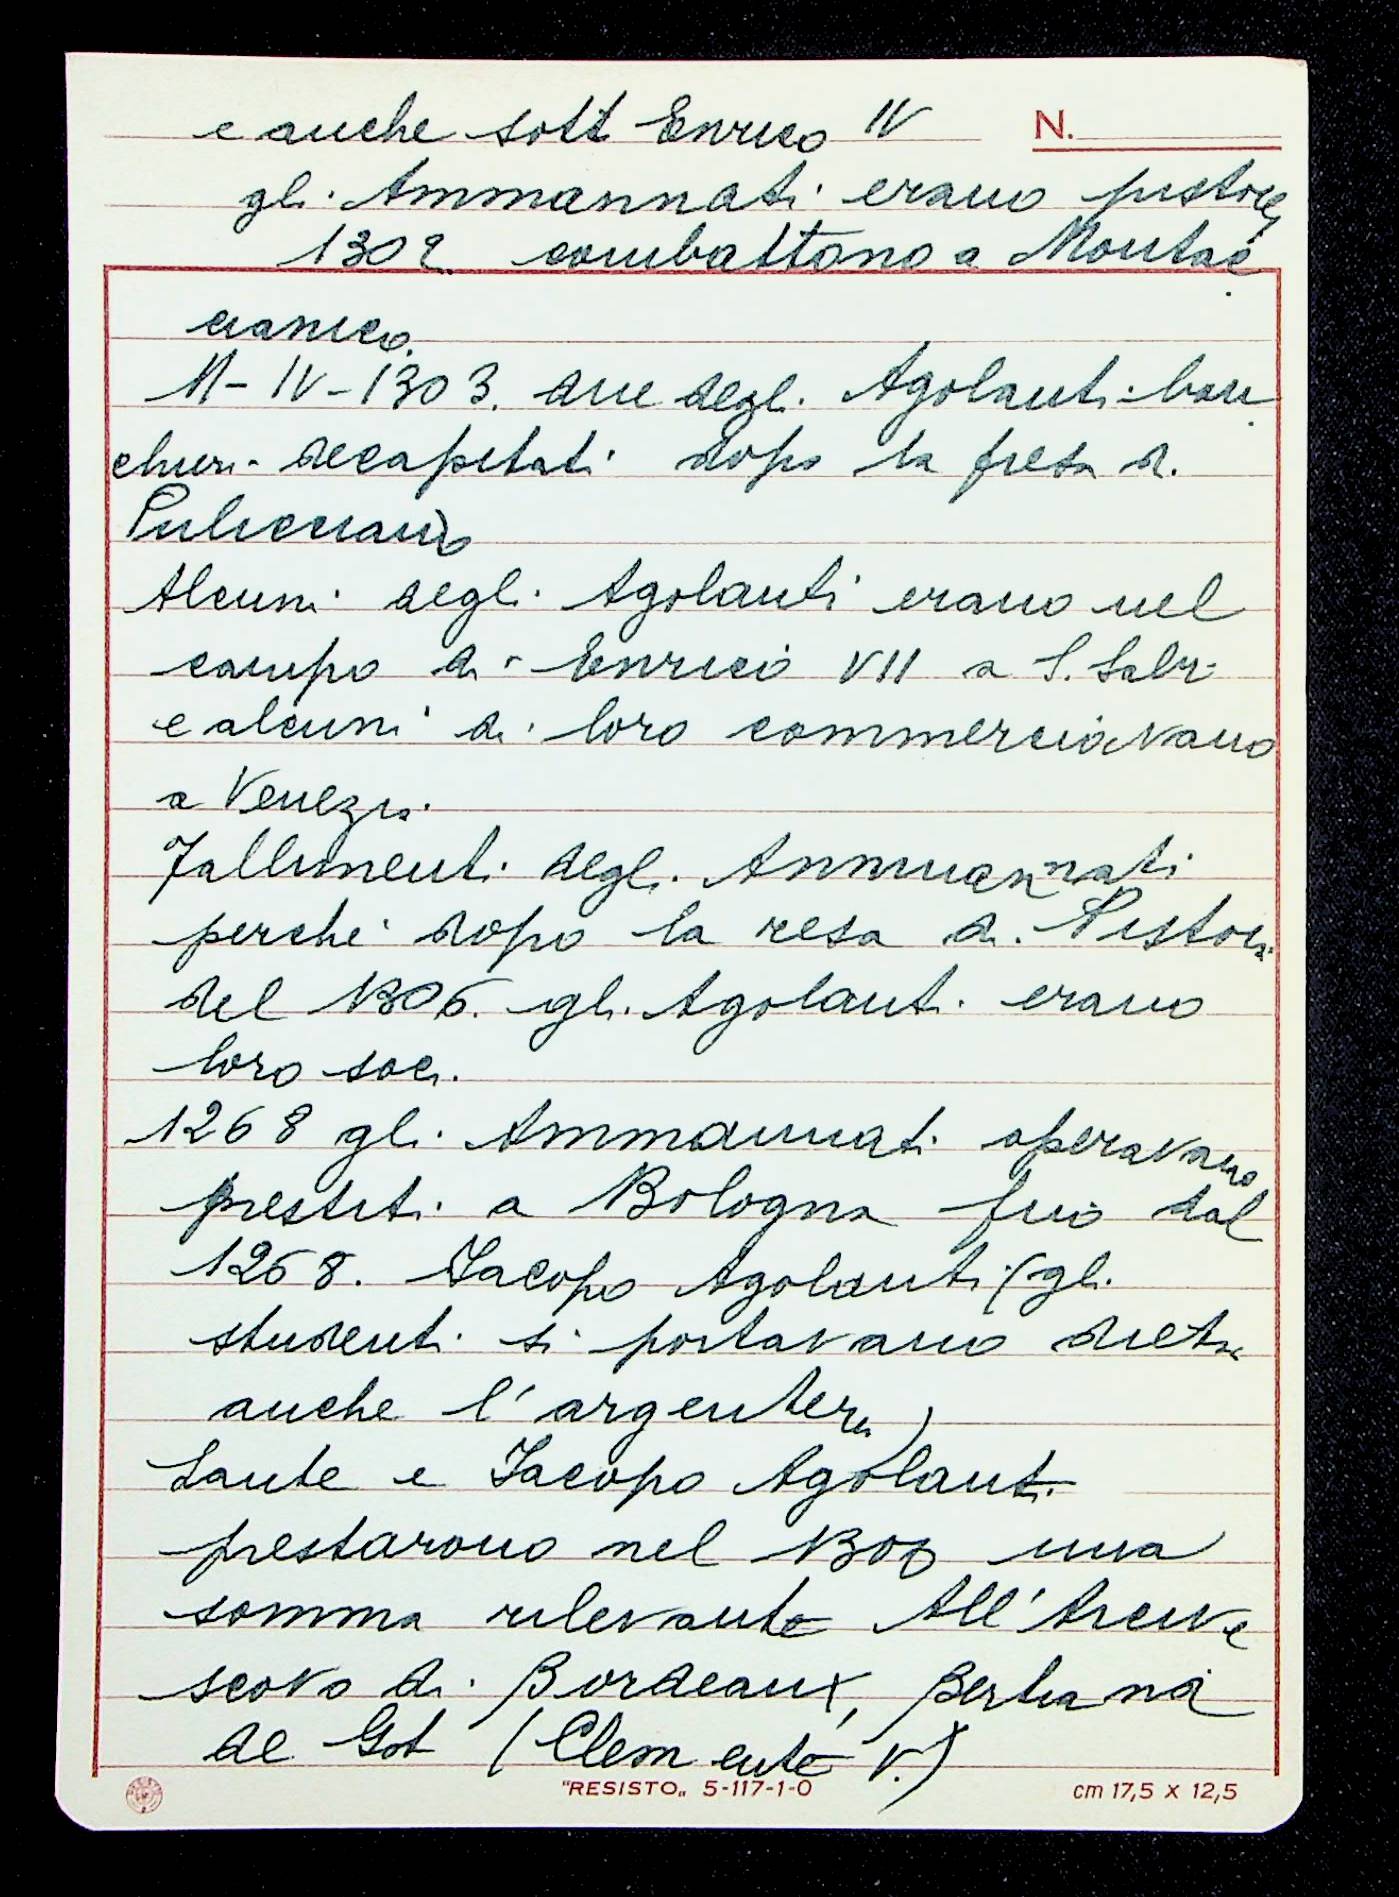 e anche sott Enrico IV
N.
gli Ammannati erano pistoiesi
1302 combattono a Montac
cianico.
11-IV-1303. due degli Agolanti-ban
chieri- decapitati dopo la presa di
Pulicciano
Alcuni degli Agolanti erano nel
campo di Enrico VII a S. Salvi
e alcuni di loro commerciavano
a Venezia.
Fallimenti degli Ammannati
perché dopo la resa di Pistoia
del 1306. gli Agolanti erano
loro soci.
1268 gli Ammannati operavano
prestiti a Bologna fino dal
1268. Iacopo Agolanti (gli
studenti si portavano dietro
anche l'argenteria)
Lante e Iacopo Agolanti
prestarono nel una
somma rilevante All'Arcive
scovo di Bordeaux, Bertrand
de Got (Clemente V.)
"RESISTO„ 5-117-1-0
cm 17,5 x 12,5